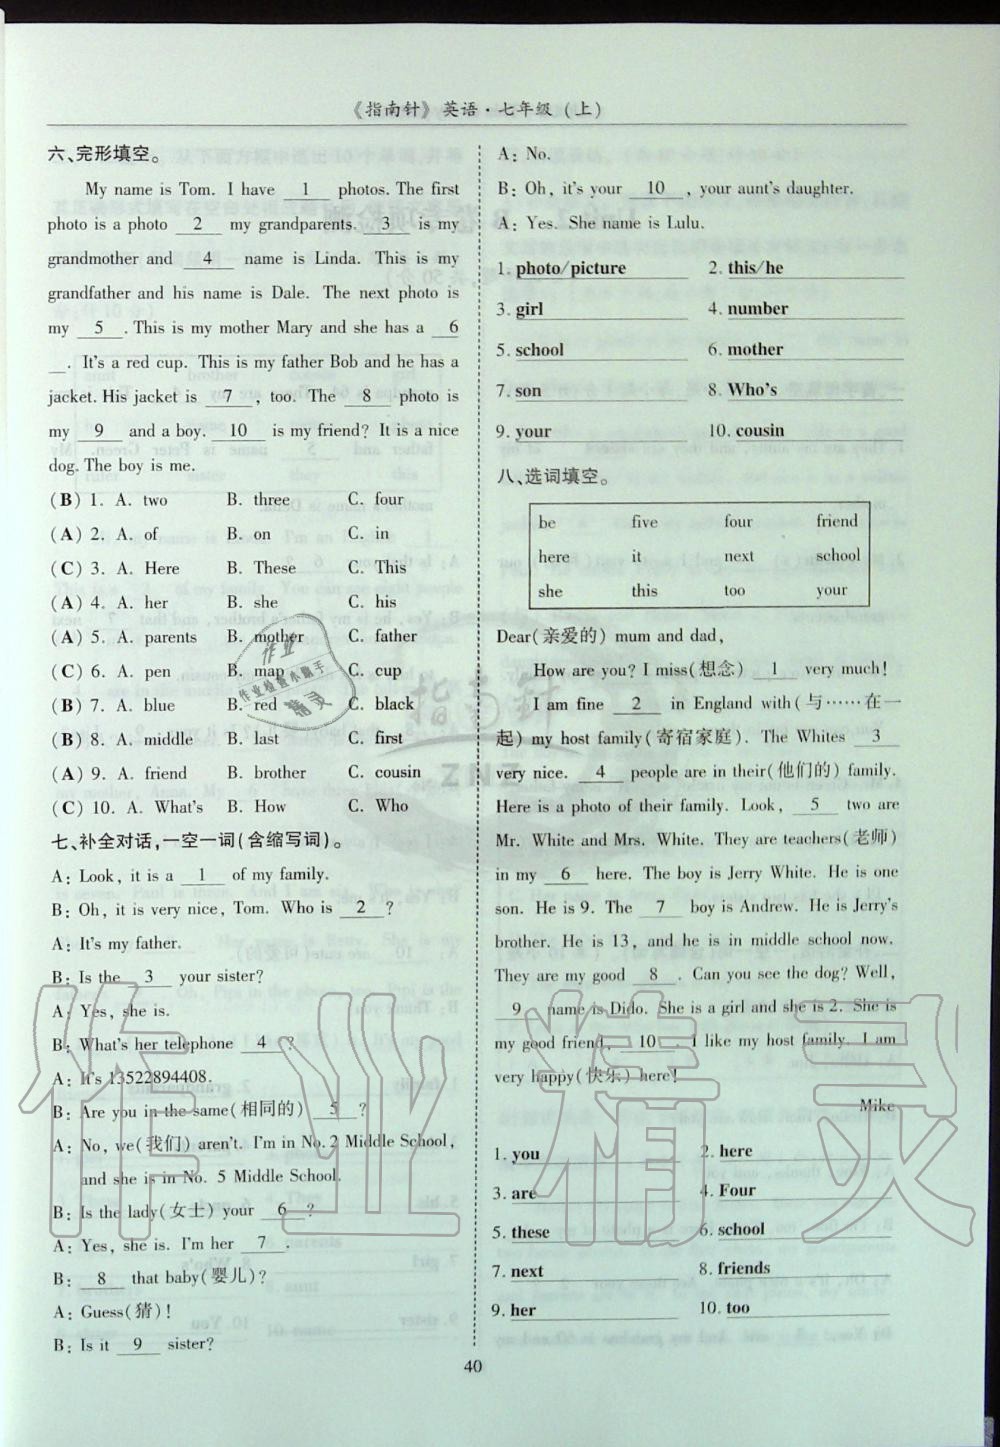 《指南针》英语·七年级（上）
六、完形填空。
My name is Tom. I have 1 photos. The first
photo is a photo 2 my grandparents. 3 is my
grandmother and 4 name is Linda. This is my
grandfather and his name is Dale. The next photo is
my 5 . This is my mother Mary and she has a 6
. It's a red cup. This is my father Bob and he has a
jacket. His jacket is 7 , too. The 8 photo is
my 9 and a boy. 10 is my friend? It is a nice
dog. The boy is me.
(B) 1. A. two B. three C. four
(A) 2. A. of B. on C. in
(C) 3. A. Here B. These C. This
(A) 4. A. her B. she C. his
(A) 5. A. parents B. mother C. father
(C) 6. A. pen B. map C. cup
(B) 7. A. blue B. red C. black
(B) 8. A. middle B. last C. first
(A) 9. A. friend B. brother C. cousin
(C) 10. A. What's B. How C. Who
七、补全对话,一空一词(含缩写词)。
A: Look, it is a 1 of my family.
B: Oh, it is very nice, Tom. Who is 2 ?
A: It's my father.
B: Is the 3 your sister?
A: Yes, she is.
B: What's her telephone 4 ?
A: It's 13522894408.
B: Are you in the same(相同的) 5 ?
A: No, we(我们) aren't. I'm in No. 2 Middle School,
and she is in No. 5 Middle School.
B: Is the lady(女士) your 6 ?
A: Yes, she is. I'm her 7 .
B: 8 that baby(婴儿)?
A: Guess(猜)!
B: Is it 9 sister?
A: No.
B: Oh, it's your 10 , your aunt's daughter.
A: Yes. She name is Lulu.
1. photo/picture 2. this/he
3. girl 4. number
5. school 6. mother
7. son 8. Who's
9. your 10. cousin
八、选词填空。
be five four friend
here it next school
she this too your
Dear(亲爱的) mum and dad,
How are you? I miss(想念) 1 very much!
I am fine 2 in England with(与……在一
起) my host family(寄宿家庭). The Whites 3
very nice. 4 people are in their(他们的) family.
Here is a photo of their family. Look, 5 two are
Mr. White and Mrs. White. They are teachers(老师)
in my 6 here. The boy is Jerry White. He is one
son. He is 9. The 7 boy is Andrew. He is Jerry's
brother. He is 13, and he is in middle school now.
They are my good 8 . Can you see the dog? Well,
9 name is Dido. She is a girl and she is 2. She is
my good friend, 10 . I like my host family. I am
very happy(快乐) here!
Mike
1. you 2. here
3. are 4. Four
5. these 6. school
7. next 8. friends
9. her 10. too
40
指南针
ZNZ
作业
作业检查小助手
精灵
作业精灵